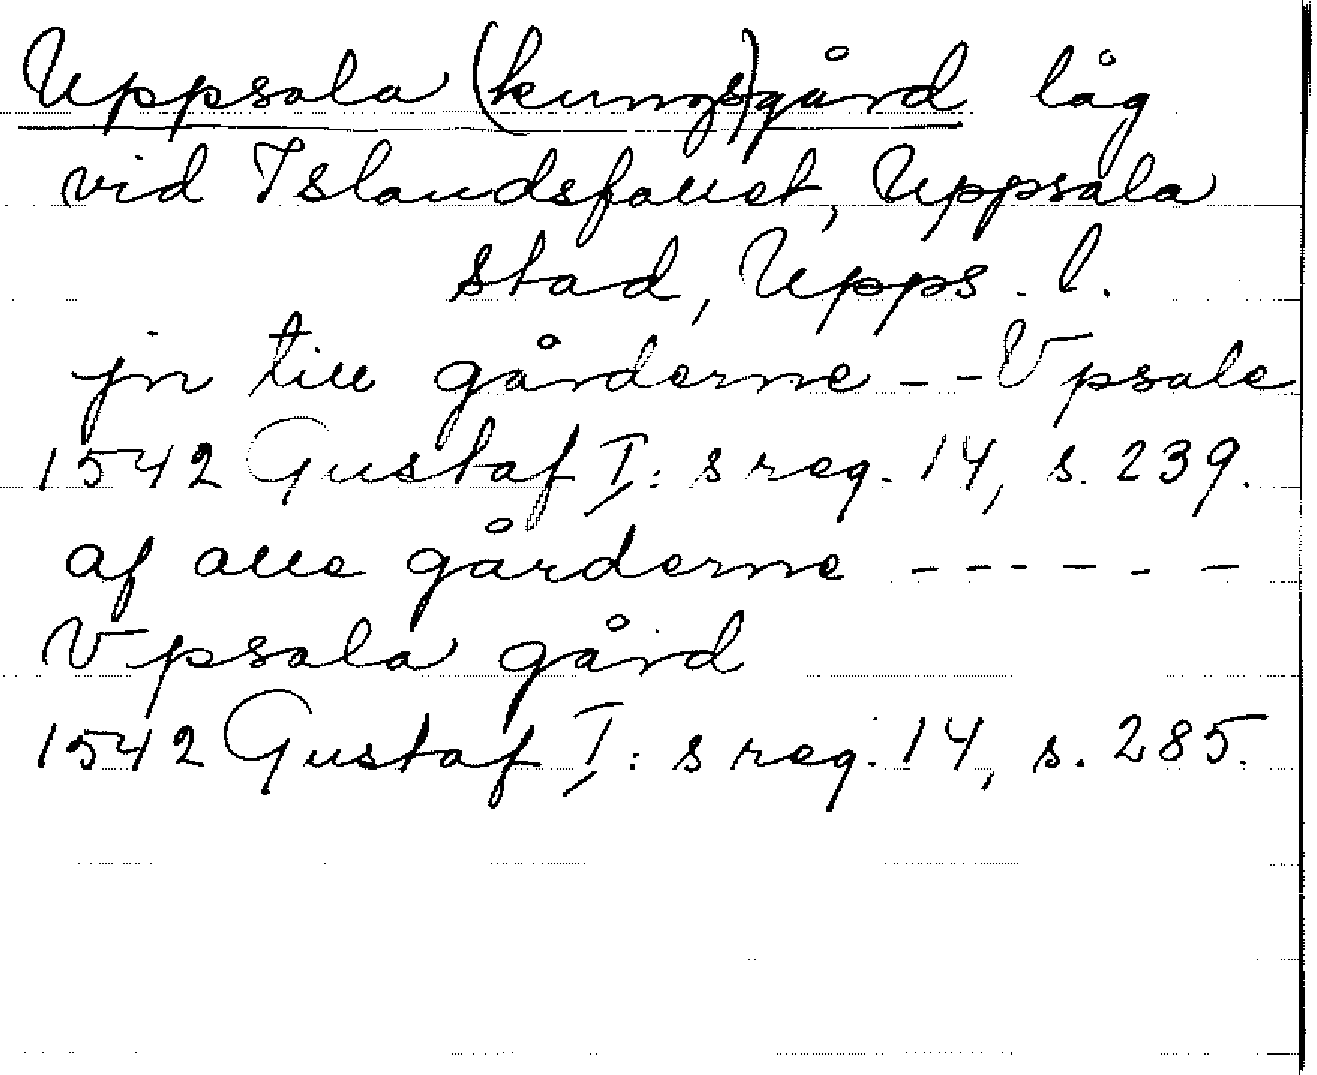 Uppsala (kungs)gård låg
vid Islandsfallet, Uppsala
stad, Upps. l.
jn till gårderne -- Vpsale
1542 Gustaf I: s reg. 14, s. 239.
af alle gårderne ------
Vpsala gård
1542 Gustaf I: s reg. 14, s. 285.